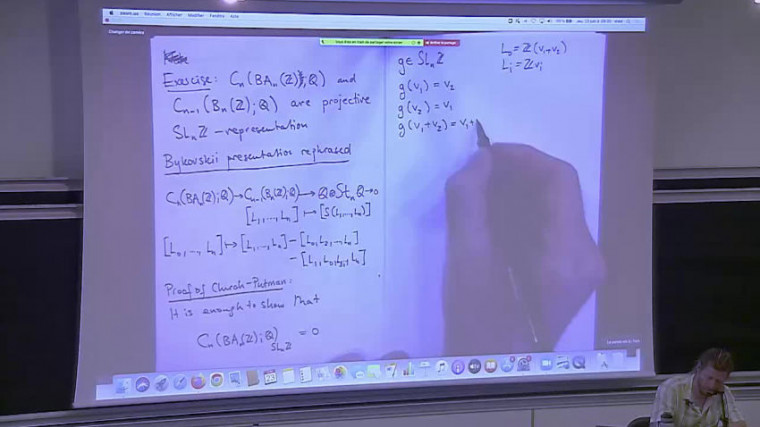 Exercise: Cₙ(BAₙ(ℤ);ℚ) and
Cₙ₋₁(Bₙ(ℤ);ℚ) are projective
SLₙℤ-representation
Bykovskii presentation rephrased
Cₙ(BAₙ(ℤ);ℚ) → Cₙ₋₁(Bₙ(ℤ);ℚ) → ℚ⊗Stₙℚ → 0
[L₁,...,Lₙ] ↦ [S(L₁,...,Lₙ)]
[L₀,...,Lₙ] ↦ [L₁,...,Lₙ] - [L₀,L₂,...,Lₙ]
- [L₁,L₀,L₃,..,Lₙ]
Proof of Church-Putman:
It is enough to show that
Cₙ(BAₙ(ℤ);ℚ)_SLₙℤ = 0
g∈SLₙℤ
g(v₁) = v₂
g(v₂) = v₁
g(v₁+v₂) = v₁+
L₀=ℤ(v₁+v₂)
Lᵢ=ℤvᵢ